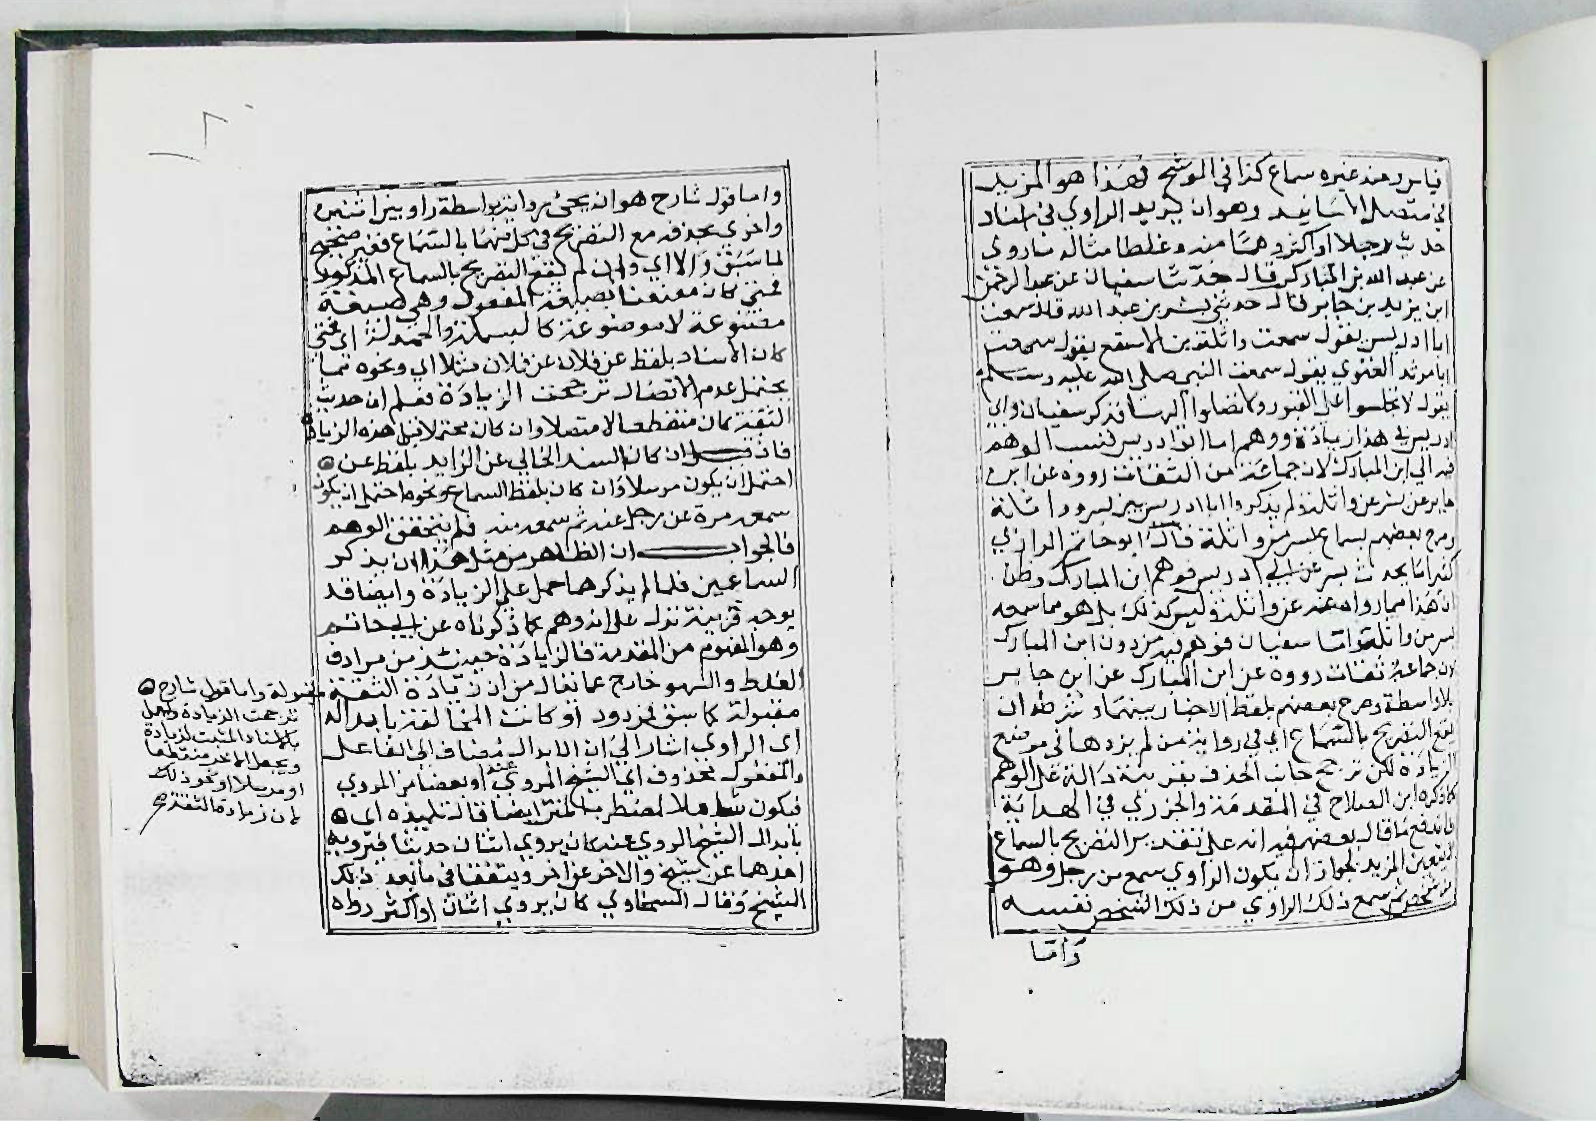 غيره سماع كذا في الموشح فهذا هو المزيد
في متصل الاسانيد وهو ان يزيد الراوي في اسناد
حديث رجلا او اكثر وهما منه وغلطا مثاله ما روي
عن عبد الله بن المبارك قال حدثنا سفيان عن عبد الرحمن
ابن يزيد بن جابر قال حدثني بسر بن عبد الله قال سمعت
ابا ادريس يقول سمعت واثلة بن الاسقع يقول سمعت
ابا مرثد الغنوي يقول سمعت النبي صلى الله عليه وسلم
يقول لا تجلسوا على القبور ولا تصلوا اليها فذكر سفيان وابي
ادريس في هذا زيادة ووهم اما ابو ادريس فنسب الوهم
فيه الى ابن المبارك لان جماعة من الثقات رووه عن ابن
جابر عن بسر عن واثلة ولم يذكروا ابا ادريس بين بسر وواثلة
وصرح بعضهم بسماع بسر من واثلة قال ابو حاتم الرازي
كثيرا ما يحدث بسر عن ابي ادريس فوهم ابن المبارك وظن
ان هذا مما رواه عنه عن واثلة وليس كذلك بل هو مما سمعه
بسر من واثلة واما سفيان فوهم فيه من دون ابن المبارك
لان جماعة ثقات رووه عن ابن المبارك عن ابن جابر
بلا واسطة وصرح بعضهم بلفظ الاخبار بينهما وشرطه ان
يقع التصريح بالسماع اي في رواية من لم يزدها في موضع
الزيادة لكن ترجح جانب الحذف بقرينة دالة على الوهم
كما ذكره ابن الصلاح في المقدمة والجزري في الهداية
فاندفع ما قال بعضهم فيه انه على تقدير التصريح بالسماع
لا يتعين المزيد لجواز ان يكون الراوي سمع من رجل وهو
من شخص ثم سمع ذلك الراوي من ذلك الشخص نفسه
واما
واما قول شارح هو ان يجئ برواية بواسطة راو بين اثنين
واخرى بحذفه مع التصريح في كل منهما بالسماع فغير صحيح
لما سبق والا اي وان لم يقع التصريح بالسماع المذكور
فمتى كان معنعنا بصيغة المفعول وهي صيغة
مصنوعة لا موضوعة كالبسملة والحمدلة اي فمتى
كان الاسناد بلفظ عن فلان عن فلان مثلا اي ونحوه مما
يحتمل عدم الاتصال ترجحت الزيادة فعلم ان حديث
الثقة كان منقطعا لا متصلا وان كان محتملا قبل هذه الزيادة
فان قيل ان كان السند الخالي عن الزايد بلفظ عن
احتمل ان يكون مرسلا وان كان بلفظ السماع ونحوه احتمل ان يكون
سمعه مرة عن رجل عنه ثم سمعه منه فلم يتحقق الوهم
فالجواب ان الظاهر من مثل هذا ان يذكر
السماعين فلما لم يذكرهما حمل على الزيادة وايضا قد
يوجد قرينة تدل على انه وهم كما ذكرناه عن ابي حاتم
وهو المفهوم من المقدمة فالزيادة حينئذ من مرادف
الغلط والسهو خارج عما يقال من ان زيادة الثقة
مقبولة كما سبق او كانت المخالفة بابداله
اي الراوي اشار الى ان الابدال مضاف الى الفاعل
والمفعول محذوف اي الشيخ المروي عنه او بعضا من المروي
فيكون شاملا لمضطرب المتن ايضا قال تلميذه اي
بابدال الشيخ المروي عنه كان يروي اثنان حديثا فيرويه
احدهما عن شيخ والاخر عن اخر ويتفقا فيما بعد ذلك
الشيخ وقال السخاوي كان يروي اثنان او اكثر رواه
مقبولة واما قول شارح
ترجحت الزيادة وجعل
بالاسناد المثبت للزيادة
ويجعل الاخر منقطعا
او مرسلا او نحو ذلك
لان زيادة الثقة صح